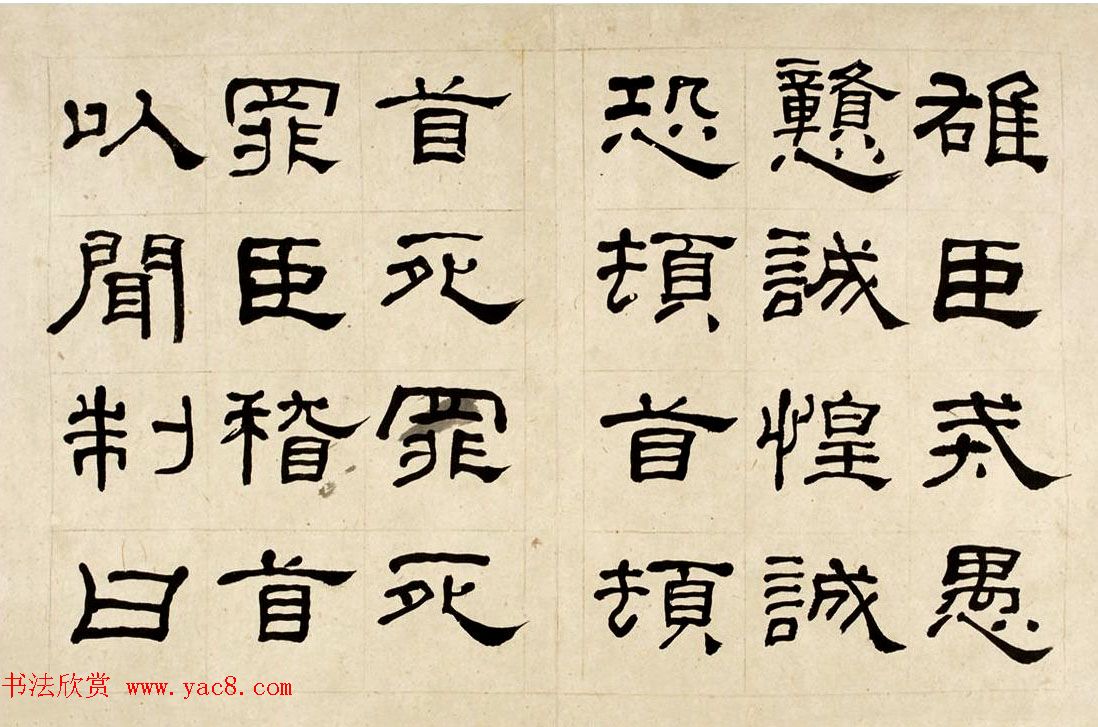 雄臣戒愚
戇誠惶誠
恐頓首頓
首死罪死
罪臣稽首
以聞制曰
书法欣赏 www.yac8.com